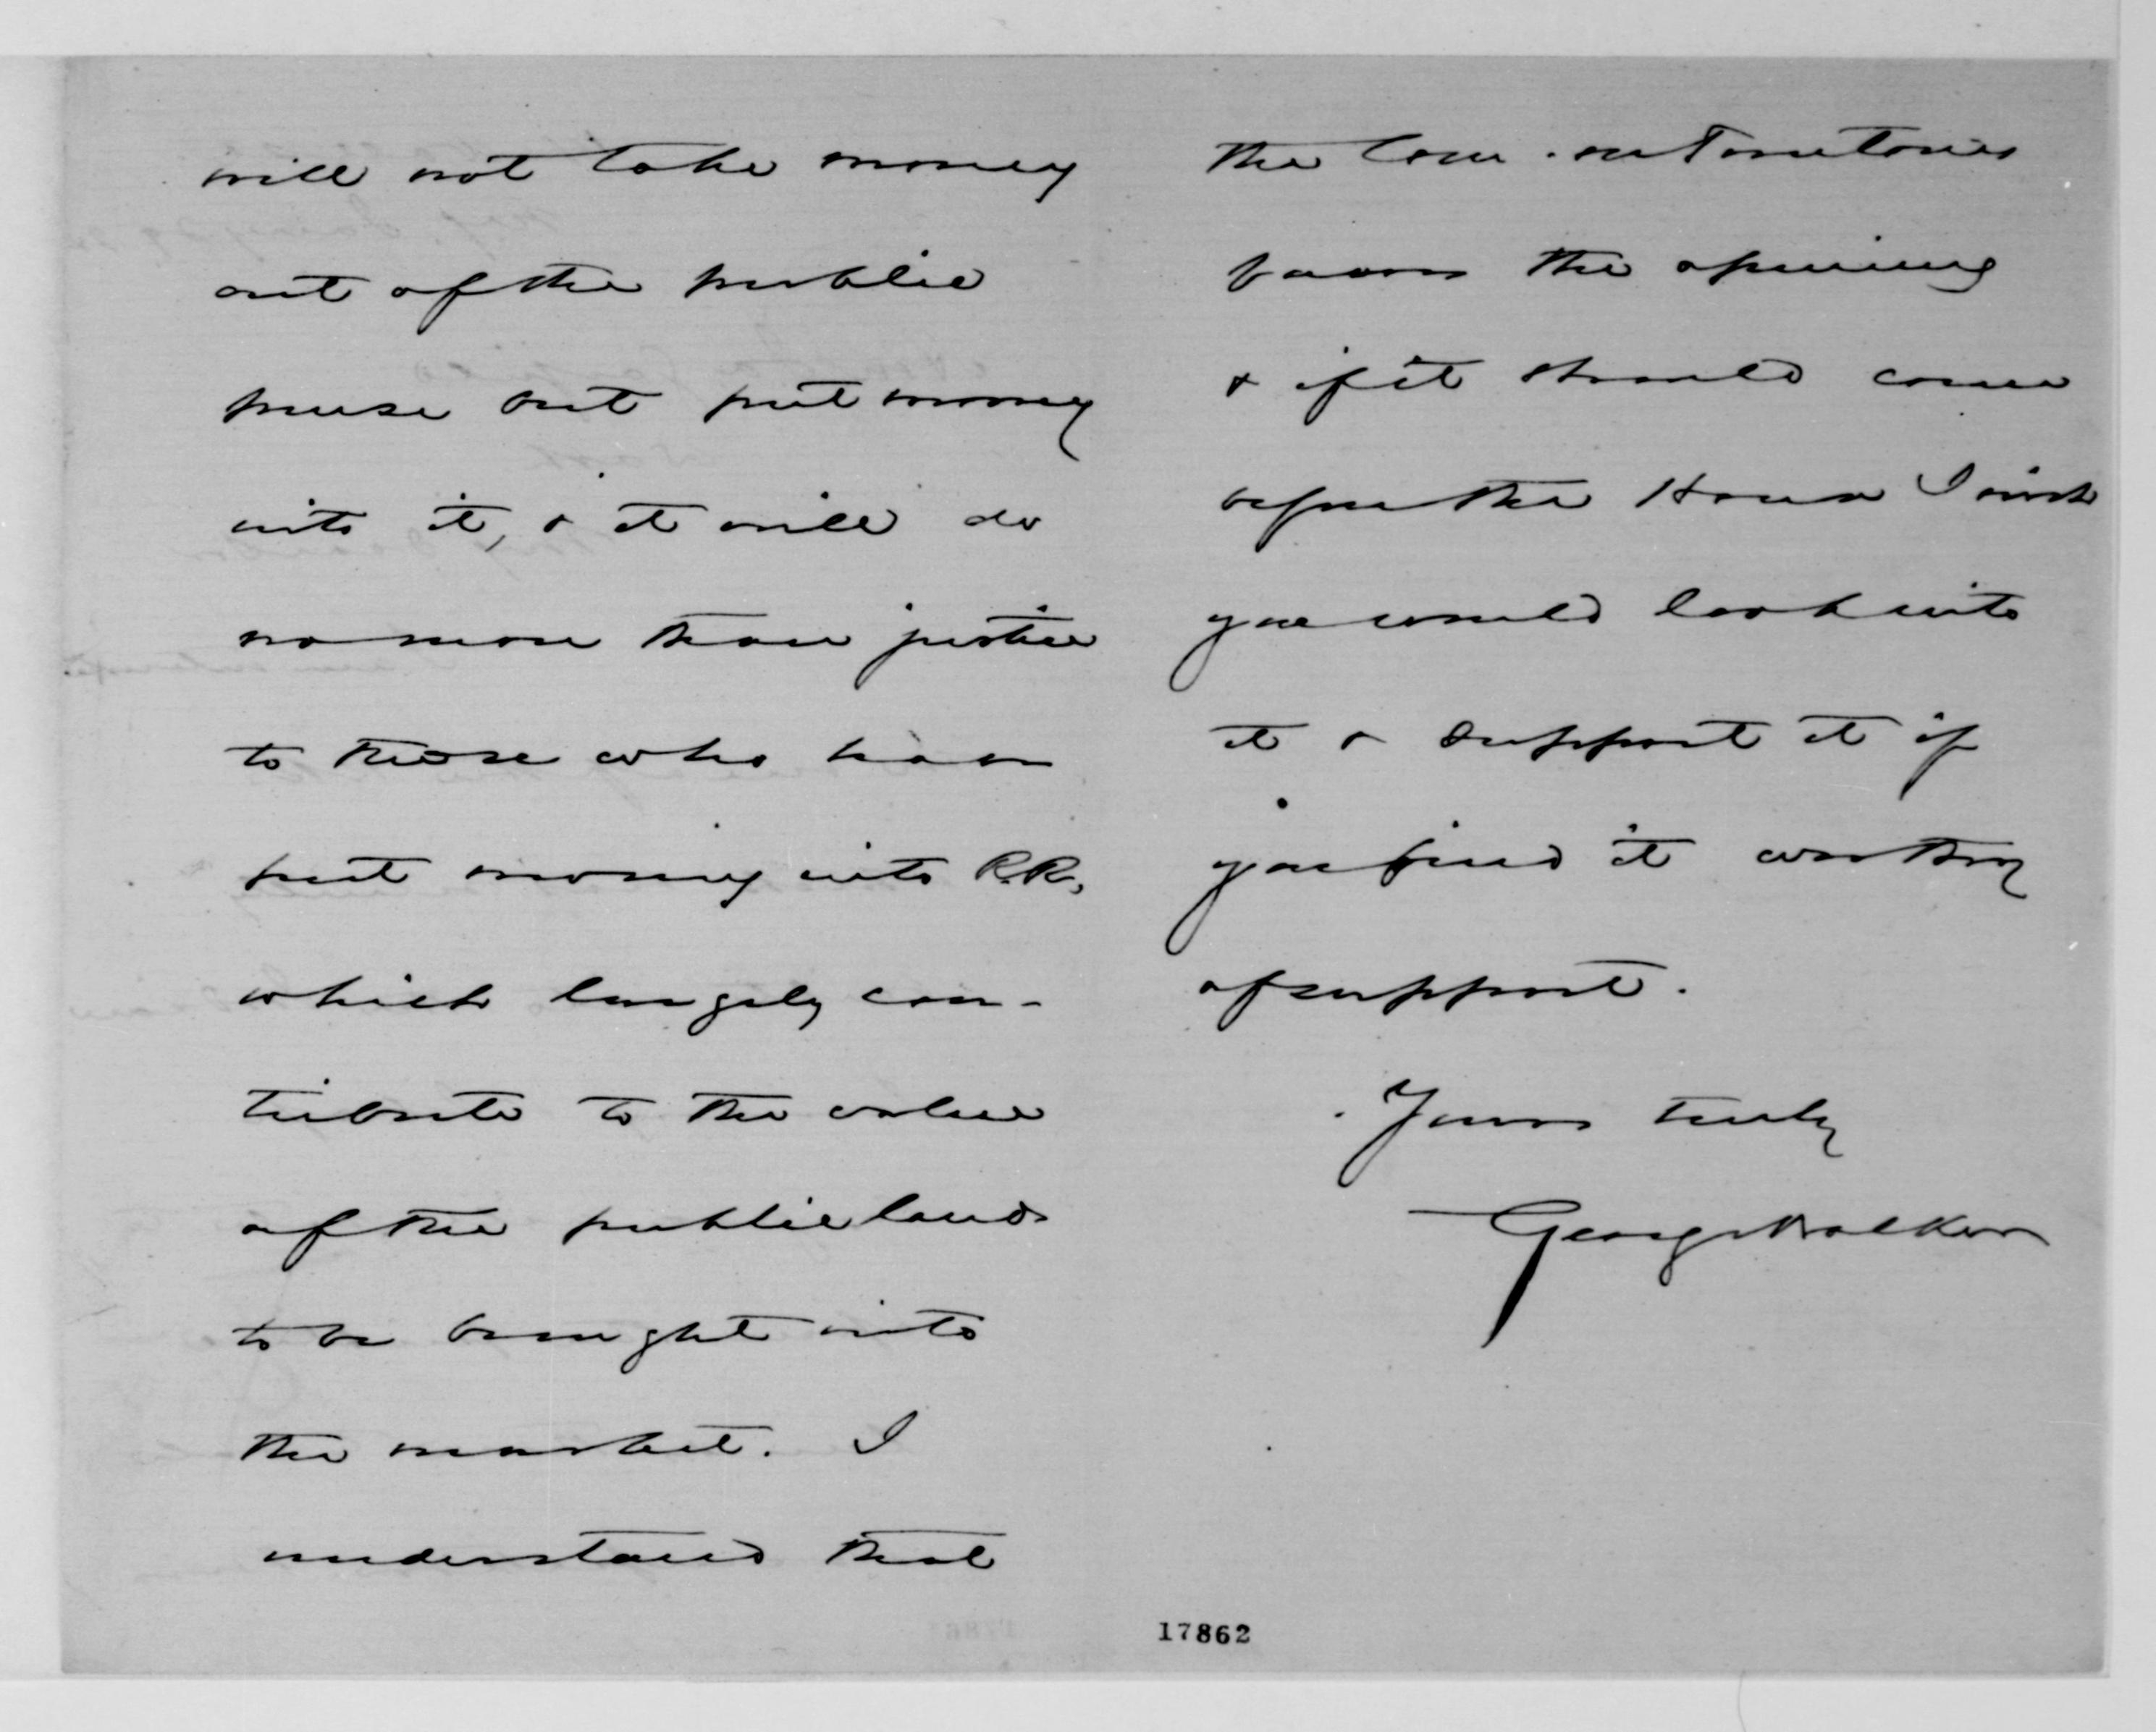 will not take money
out of the public
purse but put money
into it, & it will do
no more than justice
to those who have
put money into R.R.
which largely con-
tribute to the value
of the public lands
to be brought into
the market. I
understand that
the Com. on Territories
favors the opening
& if it should come
before the House I wish
you would look into
it & support it if
you find it worthy
of support.
Yours truly
George Walker
17862